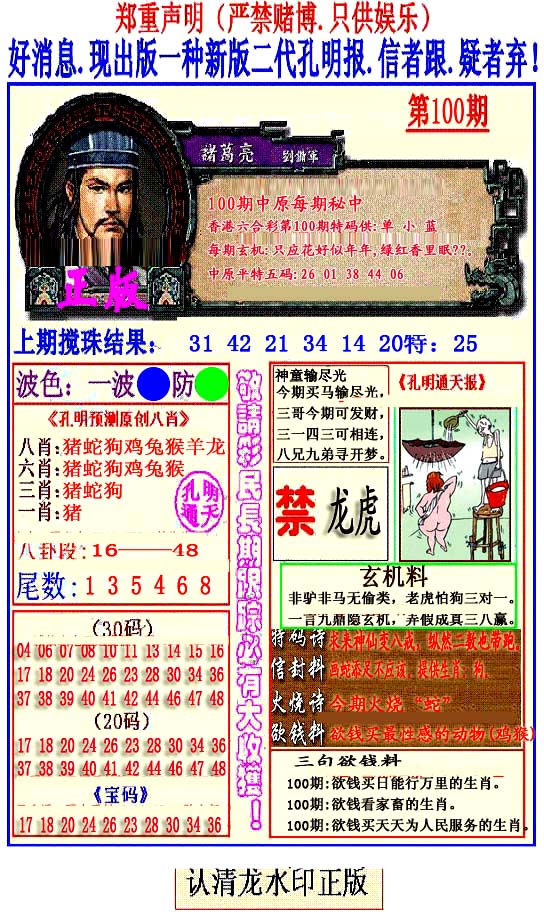 郑重声明（严禁赌博.只供娱乐）
好消息.现出版一种新版二代孔明报.信者跟.疑者弃！
第100期
諸葛亮 劉備軍
100期中原每期秘中
香港六合彩第100期特码供:单 小 蓝
每期玄机:只应花好似年年,绿红香里眠??。
中原平特五码:26 01 38 44 06
正版
上期搅珠结果： 31 42 21 34 14 20特：25
波色：一波 防
《孔明预测原创八肖》
八肖:猪蛇狗鸡兔猴羊龙
六肖:猪蛇狗鸡兔猴
三肖:猪蛇狗
一肖:猪
孔明通天
八卦段:16———48
尾数:1 3 5 4 6 8
(30码)
04 06 07 08 10 11 13 14 15 16
17 18 20 24 26 23 28 30 34 36
37 38 39 40 41 42 44 46 47 48
(20码)
17 18 20 24 26 23 28 30 34 36
37 38 39 40 41 42 44 46 47 48
《宝码》
17 18 20 24 26 23 28 30 34 36
敬請彩民長期跟踪必有大收獲！
神童输尽光
今期买马输尽光，
三哥今期可发财，
三一四三可相连，
八兄九弟寻开梦。
《孔明通天报》
禁 龙虎
玄机料
非驴非马无偷类，老虎怕狗三对一。
一言九鼎隐玄机，弄假成真三八赢。
特码诗 求来神仙变八戒，纵然二数也带跑。
信封料 画蛇添足不应该，提供生肖：狗。
火烧诗 今期火烧“蛇”
欲钱料 欲钱买最性感的动物(鸡猴)
三句欲钱料
100期:欲钱买日能行万里的生肖。
100期:欲钱看家畜的生肖。
100期:欲钱买天天为人民服务的生肖。
认清龙水印正版